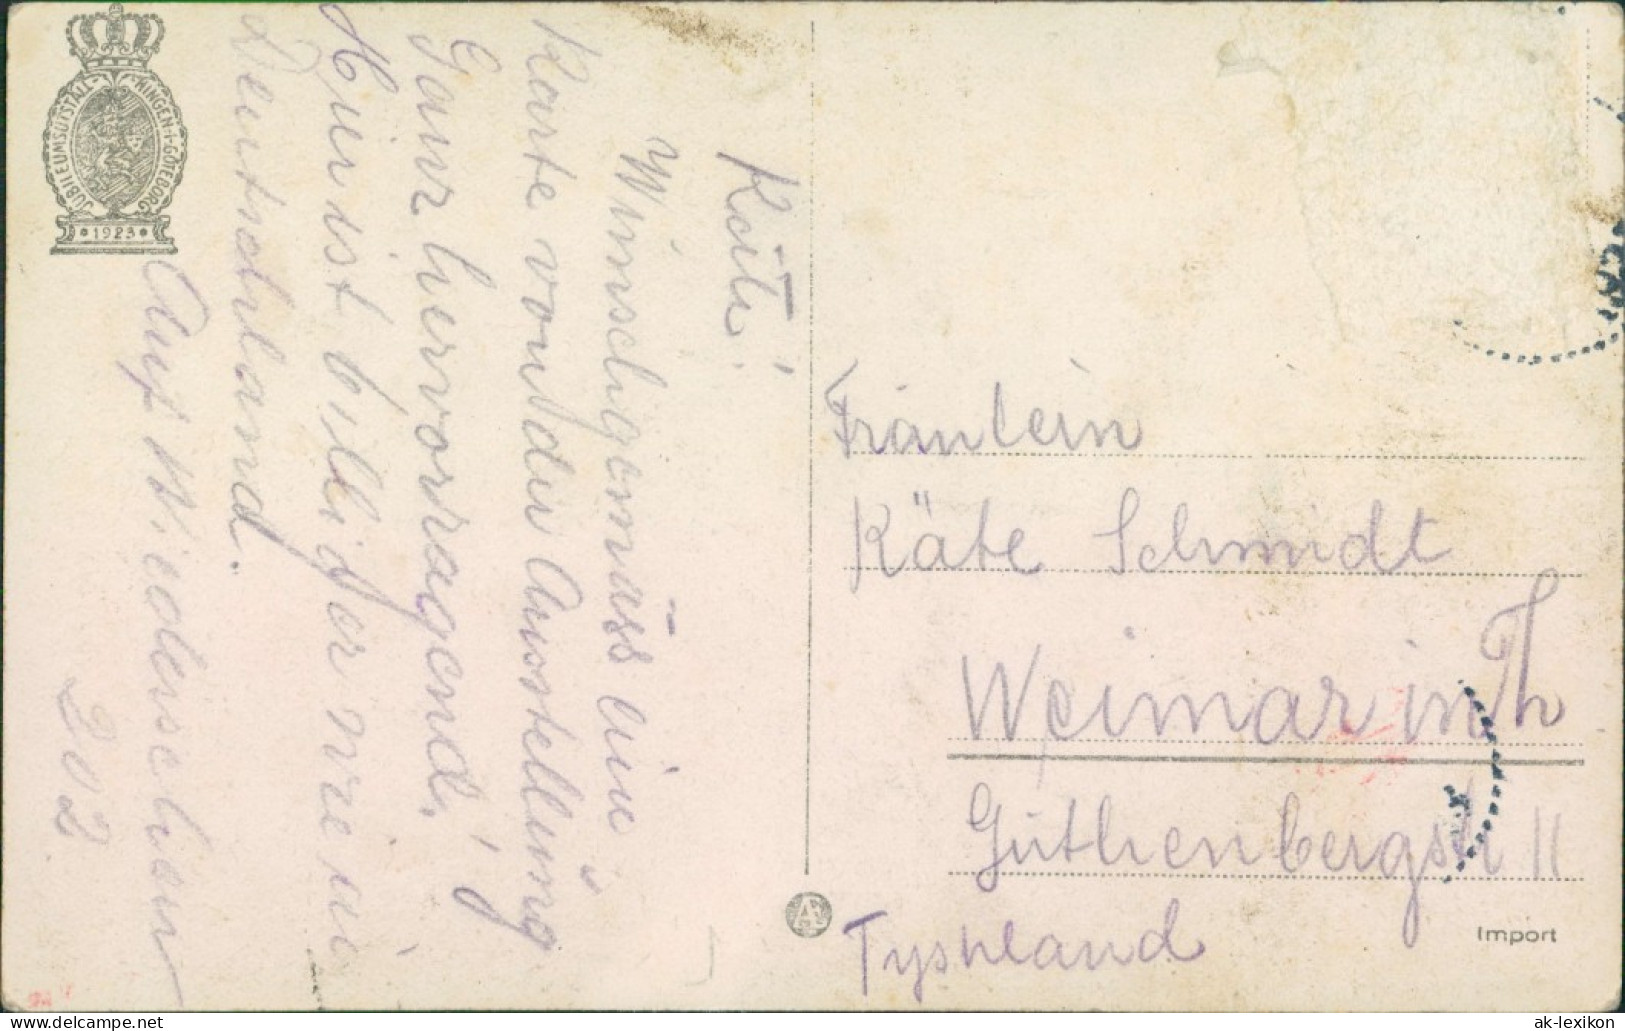 JUBILEUMSUTSTÄLLNINGEN·I·GÖTEBORG
1923
Käti!
Wunschgemäss eine
Karte von der Ausstellung
Ganz hervorragend,
Hier ist billiger wie in
Deutschland.
Auf Wiedersehen
Fräulein
Käte Schmidt
Weimar in Th
Guthenbergstr 11
Tyskland
Import
ak-lexikon